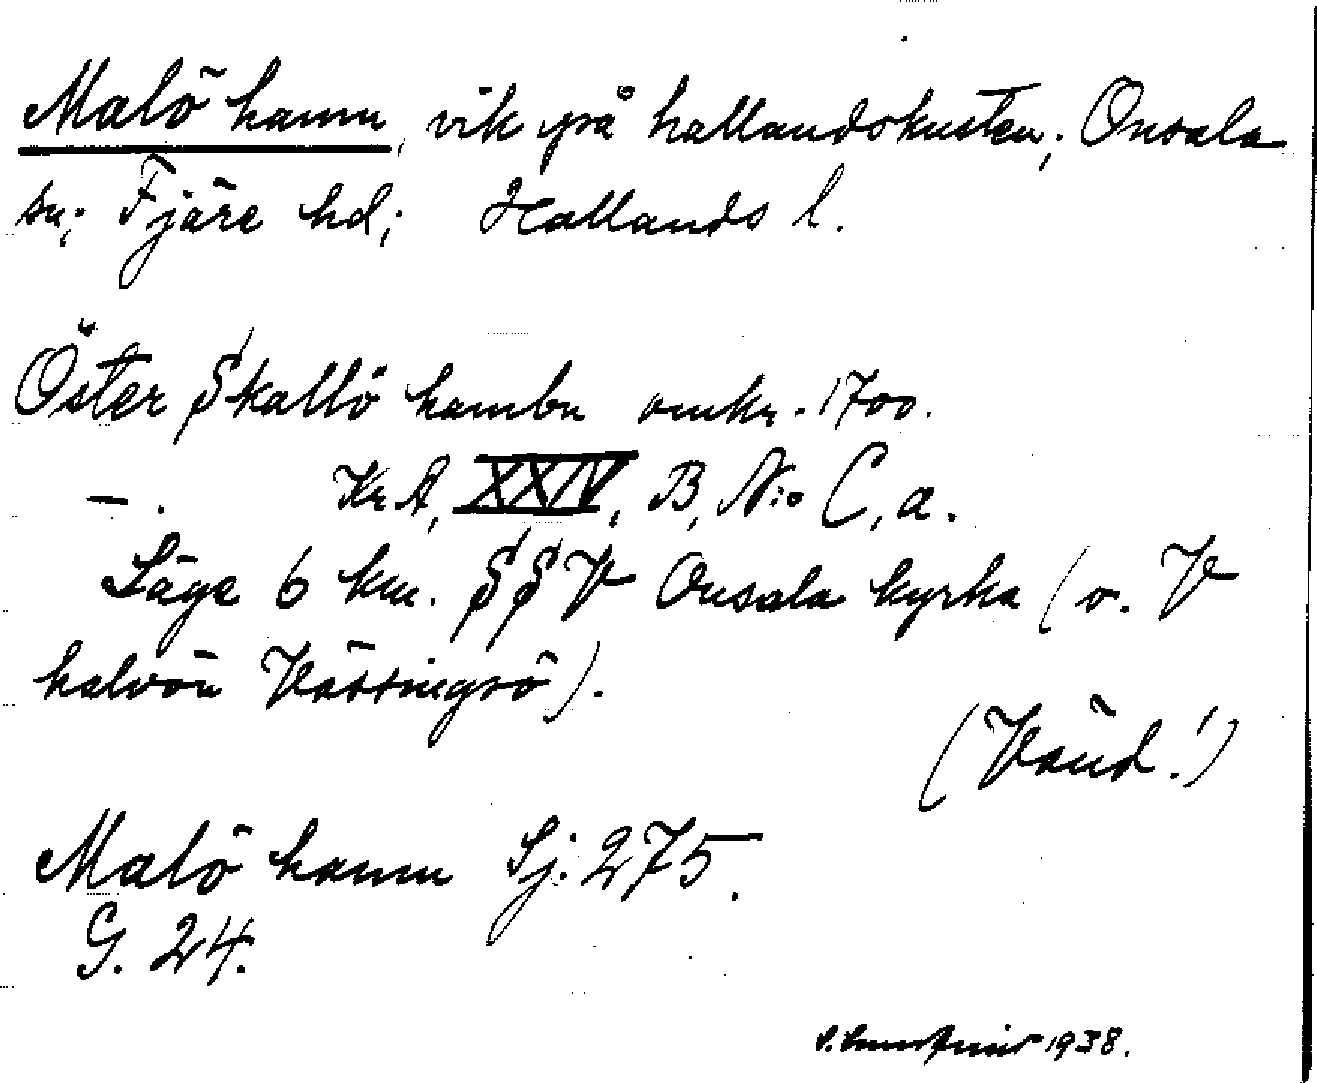 Malö hamn, vik på hallandskusten; Onsala
sn; Fjäre hd; Hallands l.
Öster Skallö hambn omkr. 1700.
—. Kr A, XXIV, B, N:o C, a.
Läge 6 km. SSV Onsala kyrka (o. V
halvön Västingsö).
(Vänd!)
Malö hamn Sj. 275.
G. 24.
1938.